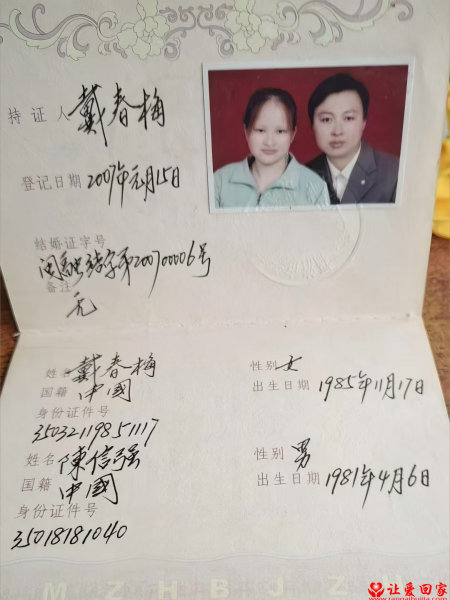 持证人 戴春梅
登记日期 2007年元月15日
结婚证字号
闽融结字第200700006号
备注
无
姓名 戴春梅 性别 女
国籍 中國 出生日期 1985年11月17日
身份证件号
35032119851117
姓名 陳信强 性别 男
国籍 中國 出生日期 1981年4月6日
身份证件号
35018181040
M Z H B J Z
让爱回家